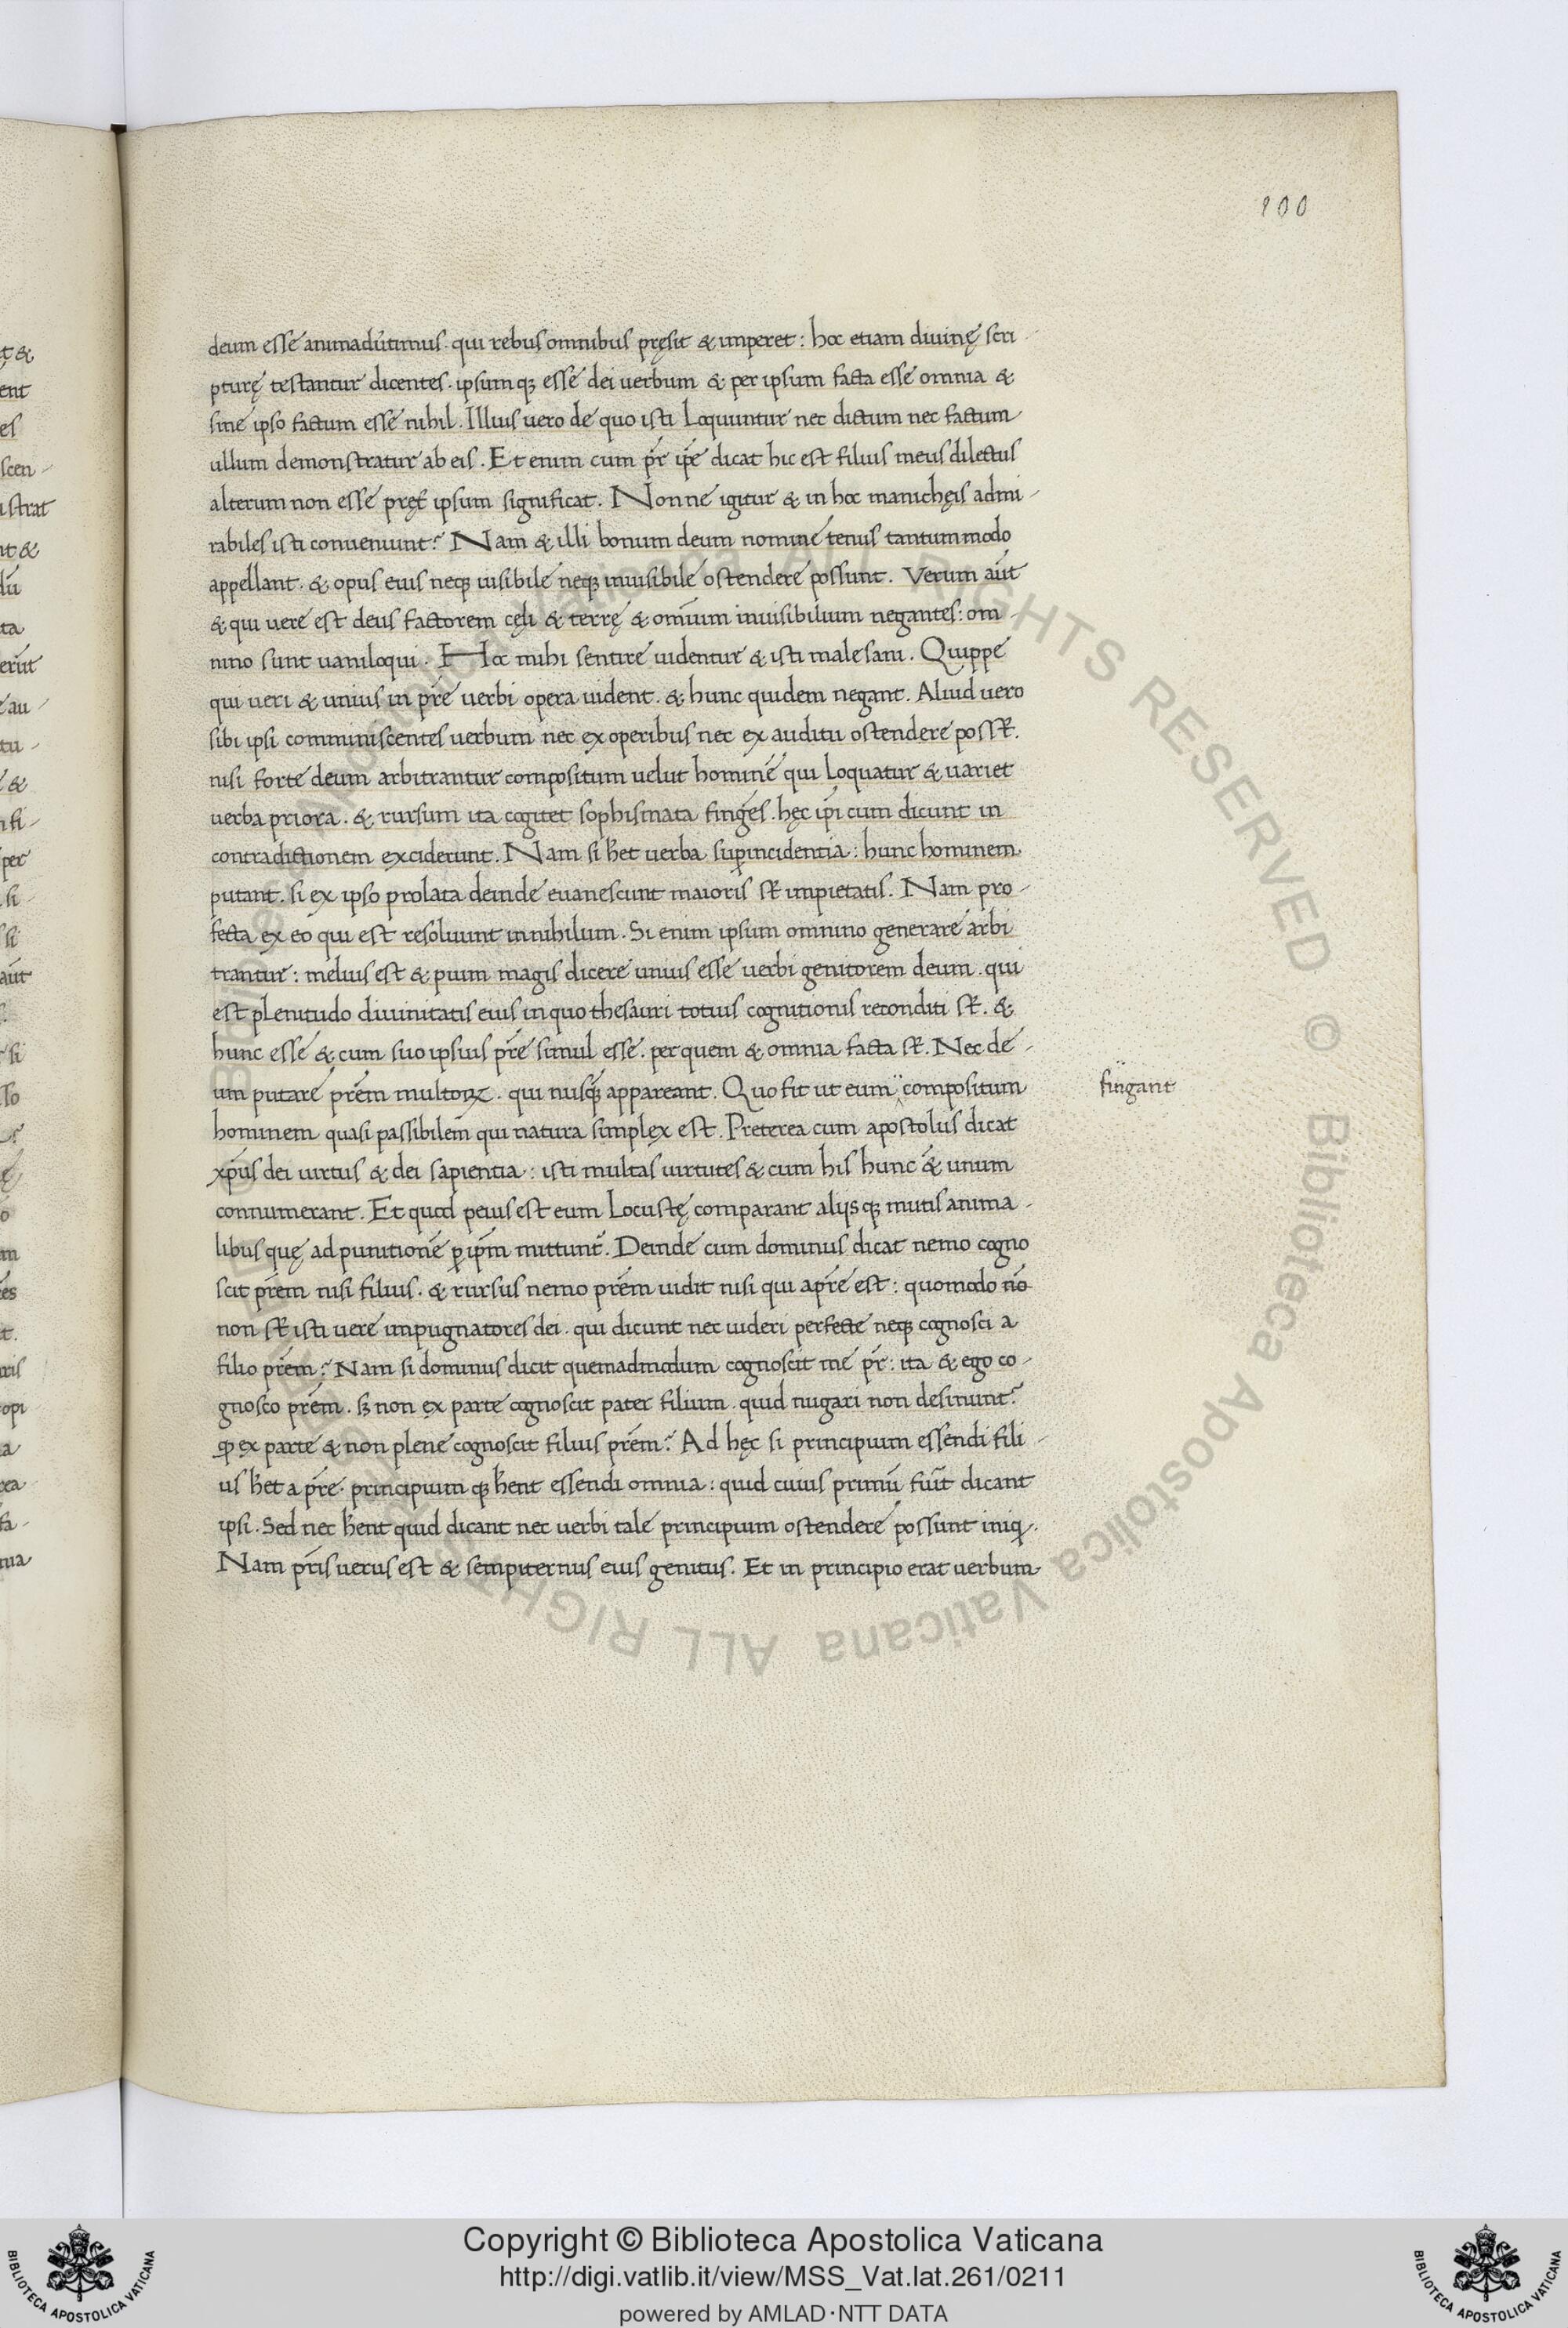 100
deum esse animaduertimus. qui rebus omnibus pręsit & imperet: hoc etiam diuinę scri-
pturę testantur dicentes. ipsumqꝫ esse dei uerbum & per ipsum facta esse omnia &
sine ipso factum esse nihil. Illius uero de quo isti Loquuntur nec dictum nec factum
ullum demonstratur ab eis. Et enim cum pr̄ ip̄e dicat hic est filius meus dilectus
alterum non esse pręt̄ ipsum significat. Nonne igitur & in hoc manichęis admi-
rabiles isti conueniunt? Nam & illi bonum deum nomine tenus tantummodo
appellant. & opus eius neqꝫ uisibile neqꝫ inuisibile ostendere possunt. Verum aūt
& qui uere est deus factorem cęli & terrę & om̄ium inuisibilium negantes: om-
nino sunt uaniloqui. Hoc mihi sentire uidentur & isti malesani. Quippe
qui ueri & unius in pr̄e uerbi opera uident. & hunc quidem negant. Aliud uero
sibi ipsi comminiscentes uerbum nec ex operibus nec ex auditu ostendere possт̄.
nisi forte deum arbitrantur compositum uelut hominē qui Loquatur & uariet
uerba priora. & rursum ita cogitet sophismata fingēs. hęc ip̄i cum dicunt in
contradictionem exciderunt. Nam si h̄et uerba sup̄incidentia: hunc hominem
putant. si ex ipso prolata deinde euanescunt maioris st̄ impietatis. Nam pro-
fecta ex eo qui est resoluunt in nihilum. Si enim ipsum omnino generare arbi
trantur: melius est & pium magis dicere unius esse uerbi genitorem deum. qui
est plenitudo diuinitatis eius in quo thesauri totius cognitionis reconditi st̄. &
hunc esse & cum suo ipsius pr̄e simul esse. per quem & omnia facta st̄. Nec de-
um putare pr̄em multoꝝ. qui nusq̄ appareant. Quo fit ut eum compositum
fingant
hominem quasi passibilem qui natura simplex est. Preterea cum apostolus dicat
xp̄us dei uirtus & dei sapientia: isti multas uirtutes & cum his hunc & unum
connumerant. Et quod peius est eum Locustę comparant alijsqꝫ mutis anima-
libus quę ad punitionē ꝑ ip̄m mittunt᷑. Deinde cum dominus dicat nemo cogno
scit pr̄em nisi filius. & rursus nemo pr̄em uidit nisi qui a pr̄e est: quomodo nō
non st̄ isti uere impugnatores dei. qui dicunt nec uideri perfecte neqꝫ cognosci a
filio pr̄em? Nam si dominus dicit quemadmodum cognoscit me pr̄: ita & ego co-
gnosco pr̄em. sꝫ non ex parte cognoscit pater filium. quid nugari non desinunt?
ꝙ ex parte & non plene cognoscit filius pr̄em? Ad hęc si principium essendi fili-
us h̄et a pr̄e. principiumqꝫ h̄ent essendi omnia: quid cuius primū fuīt dicant
ipsi. Sed nec h̄ent quid dicant nec uerbi tale principium ostendere possunt iniq̄.
Nam pr̄is uerus est & sempiternus eius genitus. Et in principio erat uerbum
Copyright © Biblioteca Apostolica Vaticana
http://digi.vatlib.it/view/MSS_Vat.lat.261/0211
powered by AMLAD·NTT DATA
BIBLIOTECA APOSTOLICA VATICANA
BIBLIOTECA APOSTOLICA VATICANA